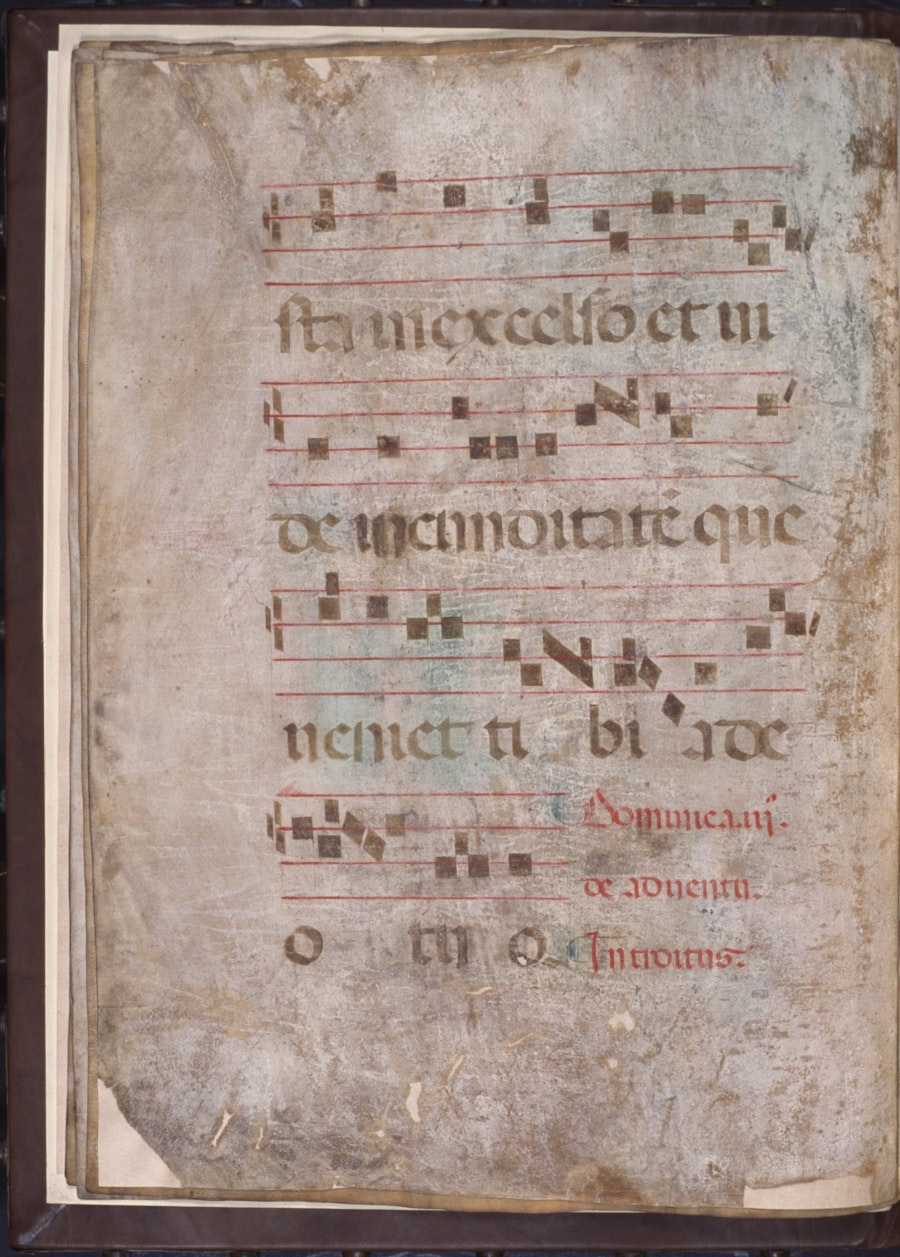 sta in excelso et in
de iucunditatē que
ueniet ti bi a de
o tu o
Dominica.iij.
de aduentu.
Introitus.